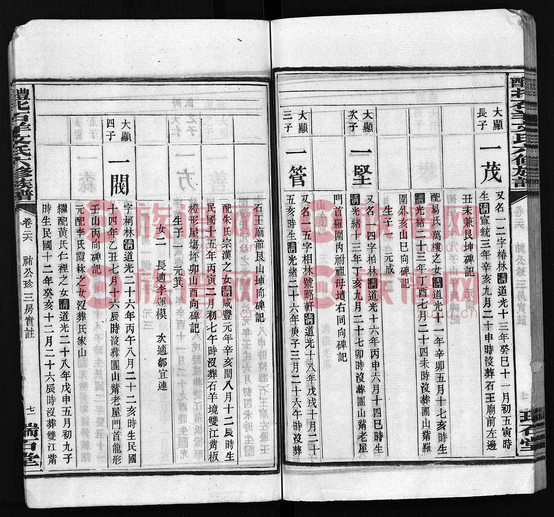 大顯長子
一茂
又名一二字椿林清道光十三年癸巳十一月初五寅時
生清宣統三年辛亥九月二十申時沒葬石王廟前左邊
丑未兼艮坤碑記
配易氏萬樓之女清道光十一年辛卯五月七亥時生
清光緒十三年丁酉七月二十四未時沒葬圍山紫羅
圍外亥山巳向碑記
生子一 元成
大顯次子
一堅
又名一四字柏林清道光十六年丙申六月十四巳時生
清光緒二十九年癸卯三月二十七卯時沒葬圍山紫老屋
門首羅圍內祔祖母墳右同向碑記
大顯三子
一管
又名一五字相林號略軒清道光十八年戊戌十月二十
五亥時生清光緒二十六年庚子三月二十六午時葬
石王廟艮山坤向碑記
配朱氏宗漢之女清咸豐元年辛亥閏八月十二辰時生
民國十五年丙寅二月初七午時沒葬石羊境雙江菁板
椅形屋場坳卯山酉向碑記
生子一 元箕
女二 長適李運模 次適鄒宜連
大顯四子
一閣
字桐林清道光二十六年丙午八月二十二亥時生民國
十四年乙丑七月十六辰時沒葬圍山紫老屋門首龍形
壬山丙向碑記
元配李氏霞林之女沒葬氏家山
繼配黃氏仁裡之女清道光二十八年戊申五月初九子
時生民國十二年癸亥十二月二十六辰時沒葬雙江菁
卷二六 祔公珍三房實註
七一